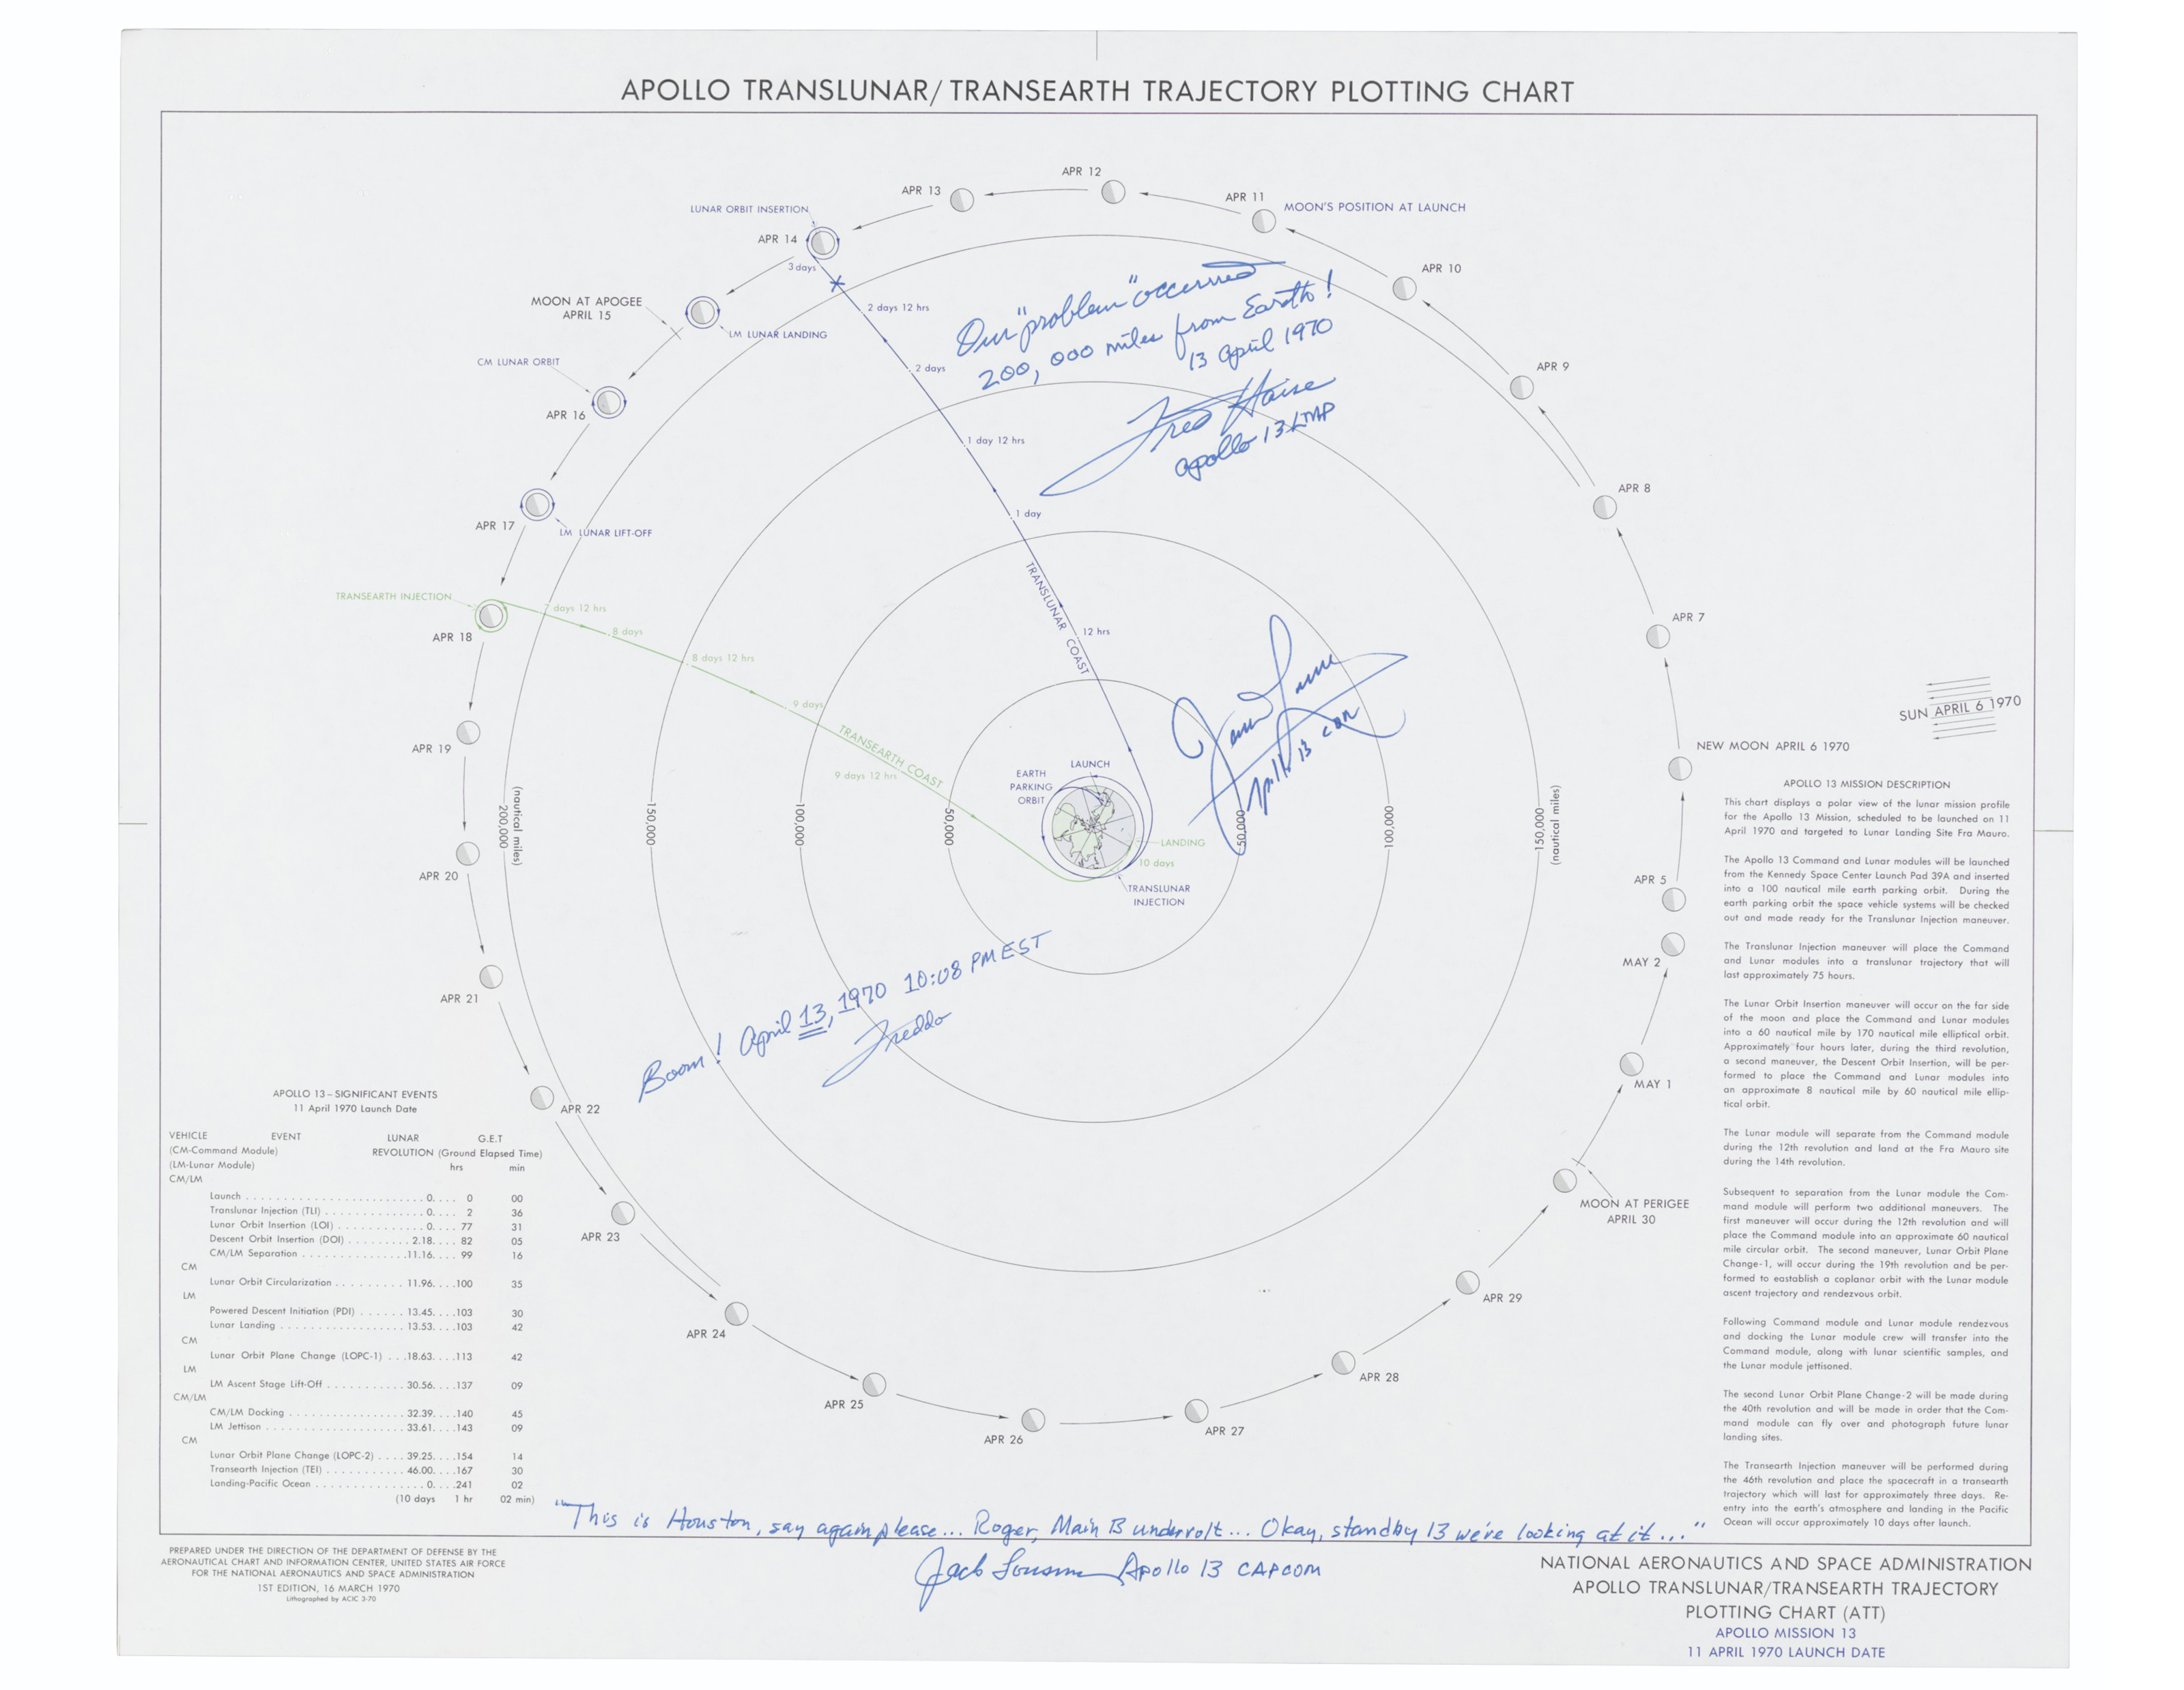 APOLLO TRANSLUNAR/TRANSEARTH TRAJECTORY PLOTTING CHART
APR 12
APR 13
APR 11
MOON'S POSITION AT LAUNCH
LUNAR ORBIT INSERTION
APR 14
3 days
APR 10
Our "problem" occurred
200,000 miles from Earth!
13 April 1970
Fred Haise
Apollo 13 LMP
MOON AT APOGEE
APRIL 15
2 days 12 hrs
LM LUNAR LANDING
CM LUNAR ORBIT
2 days
APR 9
APR 16
1 day 12 hrs
APR 8
1 day
APR 17
LM LUNAR LIFT-OFF
TRANSLUNAR COAST
TRANSEARTH INJECTION
7 days 12 hrs
APR 18
8 days
12 hrs
APR 7
8 days 12 hrs
9 days
James Lovell
Apollo 13 CDR
SUN APRIL 6 1970
APR 19
TRANSEARTH COAST
9 days 12 hrs
NEW MOON APRIL 6 1970
LAUNCH
EARTH
PARKING
ORBIT
200,000
(nautical miles)
150,000
100,000
50,000
50,000
100,000
150,000
(nautical miles)
LANDING
10 days
TRANSLUNAR
INJECTION
APR 20
APR 5
MAY 2
APR 21
Boom! April 13, 1970 10:08 PM EST
Freddo
MAY 1
APR 22
MOON AT PERIGEE
APRIL 30
APR 23
APR 29
APR 24
APR 28
APR 25
APR 27
APR 26
APOLLO 13 MISSION DESCRIPTION
This chart displays a polar view of the lunar mission profile
for the Apollo 13 Mission, scheduled to be launched on 11
April 1970 and targeted to Lunar Landing Site Fra Mauro.
The Apollo 13 Command and Lunar modules will be launched
from the Kennedy Space Center Launch Pad 39A and inserted
into a 100 nautical mile earth parking orbit. During the
earth parking orbit the space vehicle systems will be checked
out and made ready for the Translunar Injection maneuver.
The Translunar Injection maneuver will place the Command
and Lunar modules into a translunar trajectory that will
last approximately 75 hours.
The Lunar Orbit Insertion maneuver will occur on the far side
of the moon and place the Command and Lunar modules
into a 60 nautical mile by 170 nautical mile elliptical orbit.
Approximately four hours later, during the third revolution,
a second maneuver, the Descent Orbit Insertion, will be per-
formed to place the Command and Lunar modules into
an approximate 8 nautical mile by 60 nautical mile ellip-
tical orbit.
The Lunar module will separate from the Command module
during the 12th revolution and land at the Fra Mauro site
during the 14th revolution.
Subsequent to separation from the Lunar module the Com-
mand module will perform two additional maneuvers. The
first maneuver will occur during the 12th revolution and will
place the Command module into an approximate 60 nautical
mile circular orbit. The second maneuver, Lunar Orbit Plane
Change-1, will occur during the 19th revolution and be per-
formed to eastablish a coplanar orbit with the Lunar module
ascent trajectory and rendezvous orbit.
Following Command module and Lunar module rendezvous
and docking the Lunar module crew will transfer into the
Command module, along with lunar scientific samples, and
the Lunar module jettisoned.
The second Lunar Orbit Plane Change-2 will be made during
the 40th revolution and will be made in order that the Com-
mand module can fly over and photograph future lunar
landing sites.
The Transearth Injection maneuver will be performed during
the 46th revolution and place the spacecraft in a transearth
trajectory which will last for approximately three days. Re-
entry into the earth's atmosphere and landing in the Pacific
Ocean will occur approximately 10 days after launch.
APOLLO 13 – SIGNIFICANT EVENTS
11 April 1970 Launch Date
VEHICLE EVENT LUNAR G.E.T
(CM-Command Module) REVOLUTION (Ground Elapsed Time)
(LM-Lunar Module) hrs min
CM/LM
Launch 0 0 00
Translunar Injection (TLI) 0 2 36
Lunar Orbit Insertion (LOI) 0 77 31
Descent Orbit Insertion (DOI) 2.18 82 05
CM/LM Separation 11.16 99 16
CM
Lunar Orbit Circularization 11.96 100 35
LM
Powered Descent Initiation (PDI) 13.45 103 30
Lunar Landing 13.53 103 42
CM
Lunar Orbit Plane Change (LOPC-1) 18.63 113 42
LM
LM Ascent Stage Lift-Off 30.56 137 09
CM/LM
CM/LM Docking 32.39 140 45
LM Jettison 33.61 143 09
CM
Lunar Orbit Plane Change (LOPC-2) 39.25 154 14
Transearth Injection (TEI) 46.00 167 30
Landing-Pacific Ocean 0 241 02
(10 days 1 hr 02 min)
"This is Houston, say again please... Roger, Main B undervolt... Okay, standby 13 we're looking at it..."
Jack Lousma Apollo 13 CAPCOM
PREPARED UNDER THE DIRECTION OF THE DEPARTMENT OF DEFENSE BY THE
AERONAUTICAL CHART AND INFORMATION CENTER, UNITED STATES AIR FORCE
FOR THE NATIONAL AERONAUTICS AND SPACE ADMINISTRATION
1ST EDITION, 16 MARCH 1970
Lithographed by ACIC 3-70
NATIONAL AERONAUTICS AND SPACE ADMINISTRATION
APOLLO TRANSLUNAR/TRANSEARTH TRAJECTORY
PLOTTING CHART (ATT)
APOLLO MISSION 13
11 APRIL 1970 LAUNCH DATE